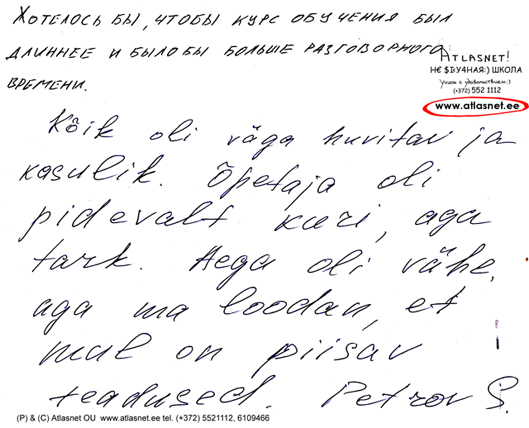 ХОТЕЛОСЬ БЫ, ЧТОБЫ КУРС ОБУЧЕНИЯ БЫЛ
ДЛИННЕЕ И БЫЛО БЫ БОЛЬШЕ РАЗГОВОРНОГО
ВРЕМЕНИ.
ATLASNET!
НЄ $БУ4НАЯ:) ШКОЛА
учись с удовольствием:)
(+372) 552 1112
www.atlasnet.ee
Kõik oli väga huvitav ja
kasulik. Õpetaja oli
pidevalt kuri, aga
tark. Aega oli vähe,
aga ma loodan, et
mul on piisav
teadused. Petrov S.
(P) & (C) Atlasnet OU www.atlasnet.ee tel. (+372) 5521112, 6109466